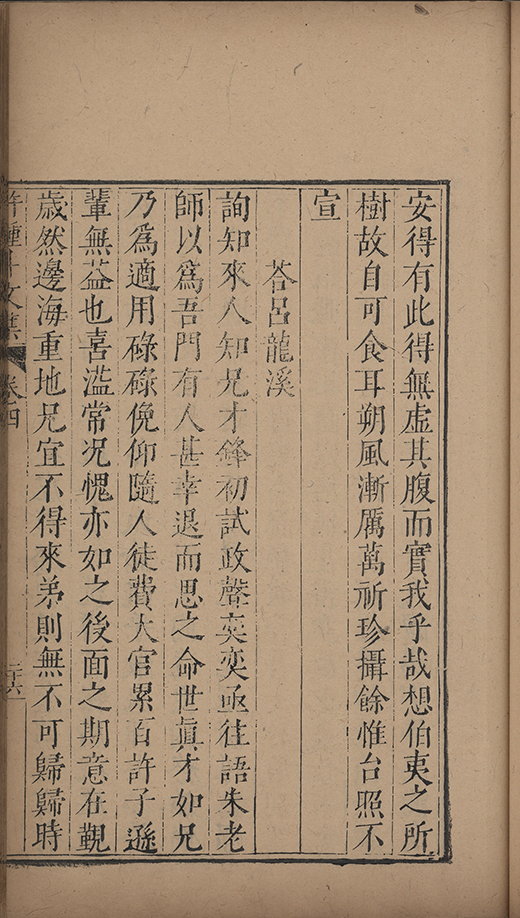 安得有此得無虛其腹而實我乎哉想伯夷之所
樹故自可食耳朔風漸厲萬祈珍攝餘惟台照不
宣
荅呂龍溪
詢知來人知兄才鋒初試政聲奕奕亟往語朱老
師以爲吾門有人甚幸退而思之命世眞才如兄
乃爲適用碌碌俛仰隨人徒費大官累百許子遜
輩無益也喜溢常况愧亦如之後面之期意在覲
歲然邊海重地兄宜不得來弟則無不可歸歸時
許鍾斗文集 卷四 二十六